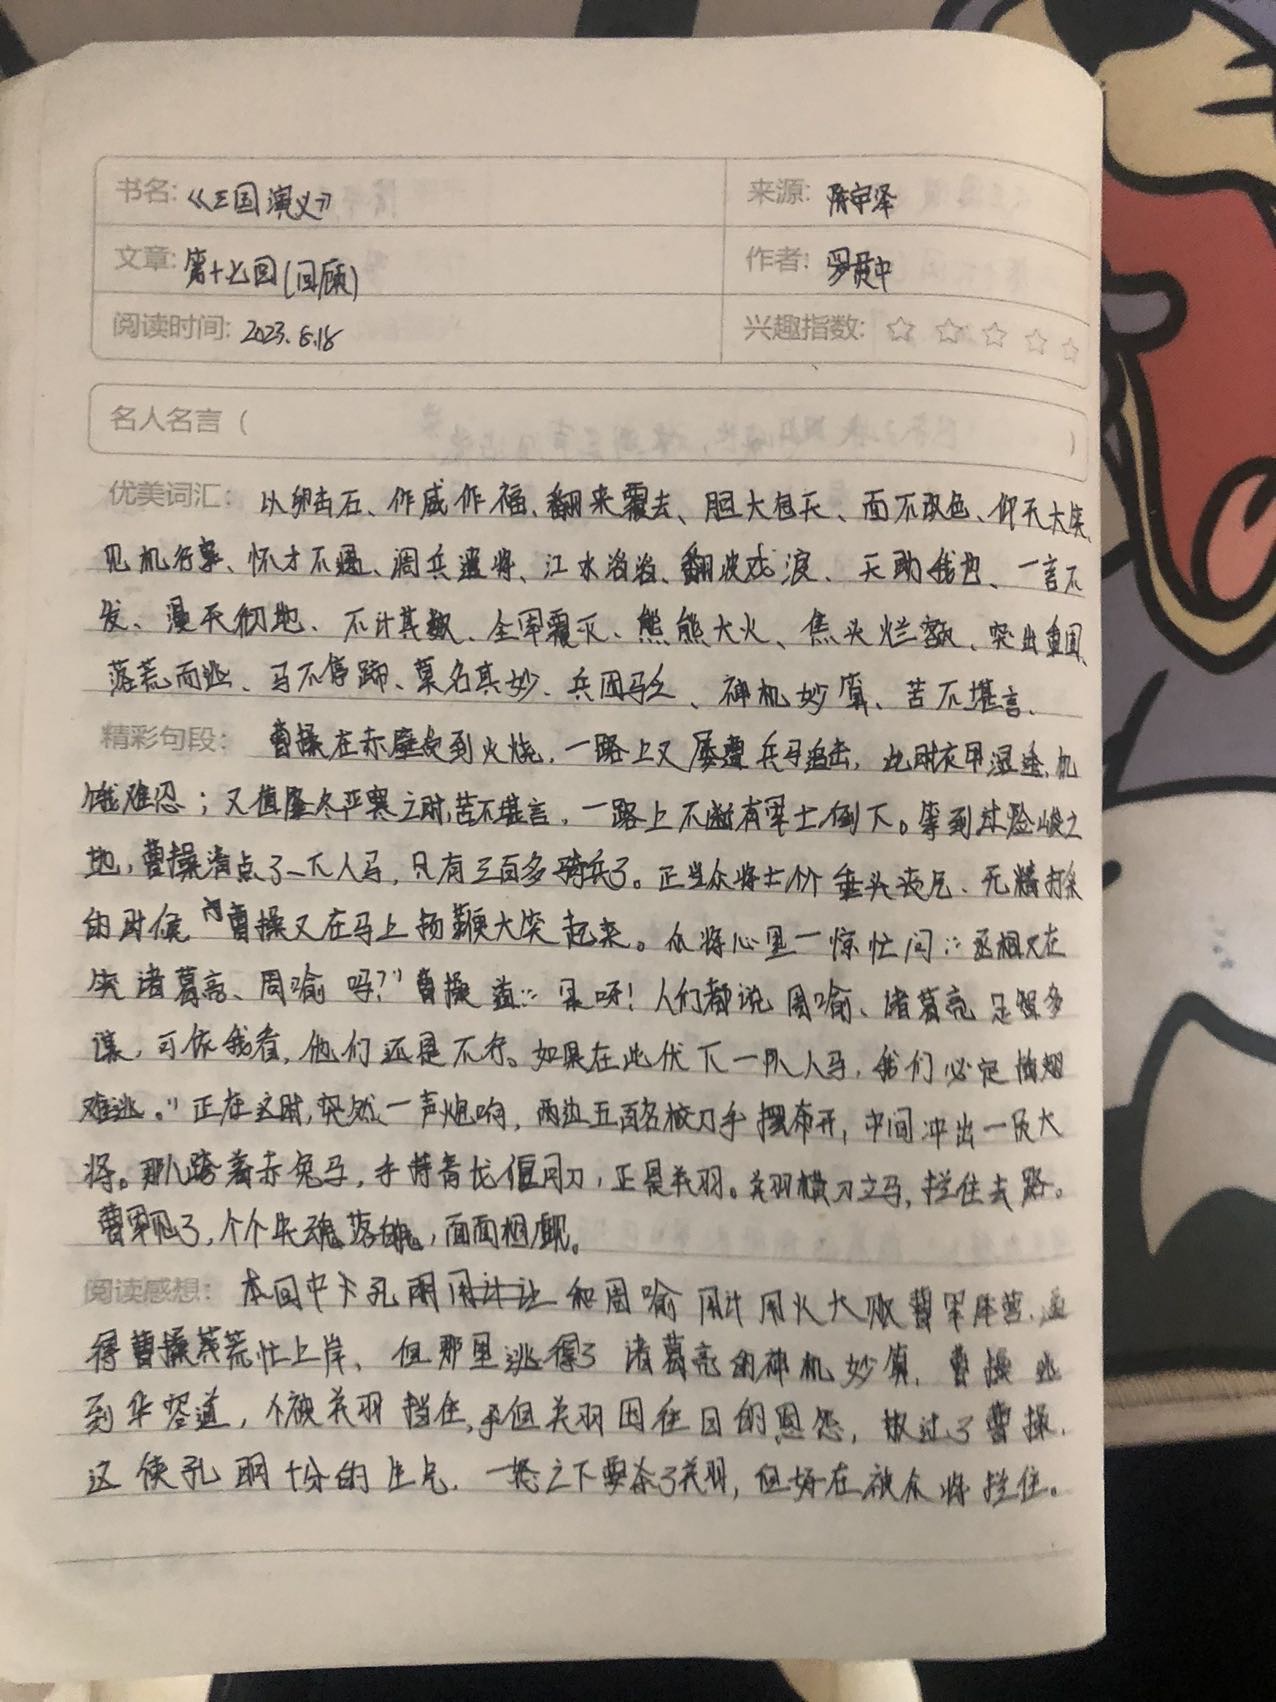 书名: 《三国演义》 来源: 陈宇泽
文章: 第十七回(回顾) 作者: 罗贯中
阅读时间: 2023.8.18 兴趣指数: ☆ ☆ ☆ ☆ ☆
名人名言 ( )
优美词汇: 以卵击石、作威作福、翻来覆去、胆大包天、面不改色、仰天大笑、
见机行事、怀才不遇、调兵遣将、江水滔滔、翻波戏浪、天助我也、一言不
发、漫天彻地、不计其数、全军覆灭、熊熊大火、焦头烂额、突出重围、
落荒而逃、马不停蹄、莫名其妙、兵困马乏、神机妙算、苦不堪言、
精彩句段: 曹操在赤壁受到火烧,一路上又屡遭兵马追击,此时衣甲湿透,机
饿难忍;又值隆冬严寒之时,苦不堪言,一路上不断有军士倒下。等到过险峻之
地,曹操清点了一下人马,只有三百多骑兵了。正当众将士个个垂头丧气、无精打采
的时候,曹操又在马上扬鞭大笑起来。众将心里一惊忙问:“丞相又在
笑诸葛亮、周喻吗?”曹操道:“是呀!人们都说周喻、诸葛亮足智多
谋,可依我看,他们还是不行。如果在此伏下一队人马,我们必定插翅
难逃。”正在这时,突然一声炮响,两边五百名校刀手摆布开,中间冲出一员大
将。那人跨着赤兔马,手持青龙偃月刀,正是关羽。关羽横刀立马,拦住去路。
曹军见了,个个失魂落魄,面面相觑。
阅读感想: 本回中 孔明 和周喻用计用火大败曹军阵营,逼
得曹操慌忙上岸,但那里逃得了诸葛亮的神机妙算,曹操逃
到华容道,个被关羽挡住,但关羽因往日的恩怨,放过了曹操,
这使孔明十分的生气,一怒之下要杀了关羽,但好在被众将拦住。